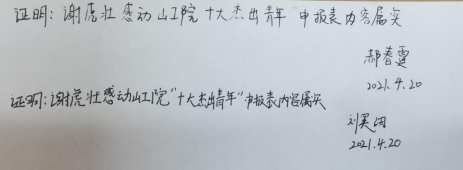 证明：谢虎壮感动山工院十大杰出青年申报表内容属实
郝春霞
2021.4.20
证明：谢虎壮感动山工院“十大杰出青年”申报表内容属实
2021.4.20